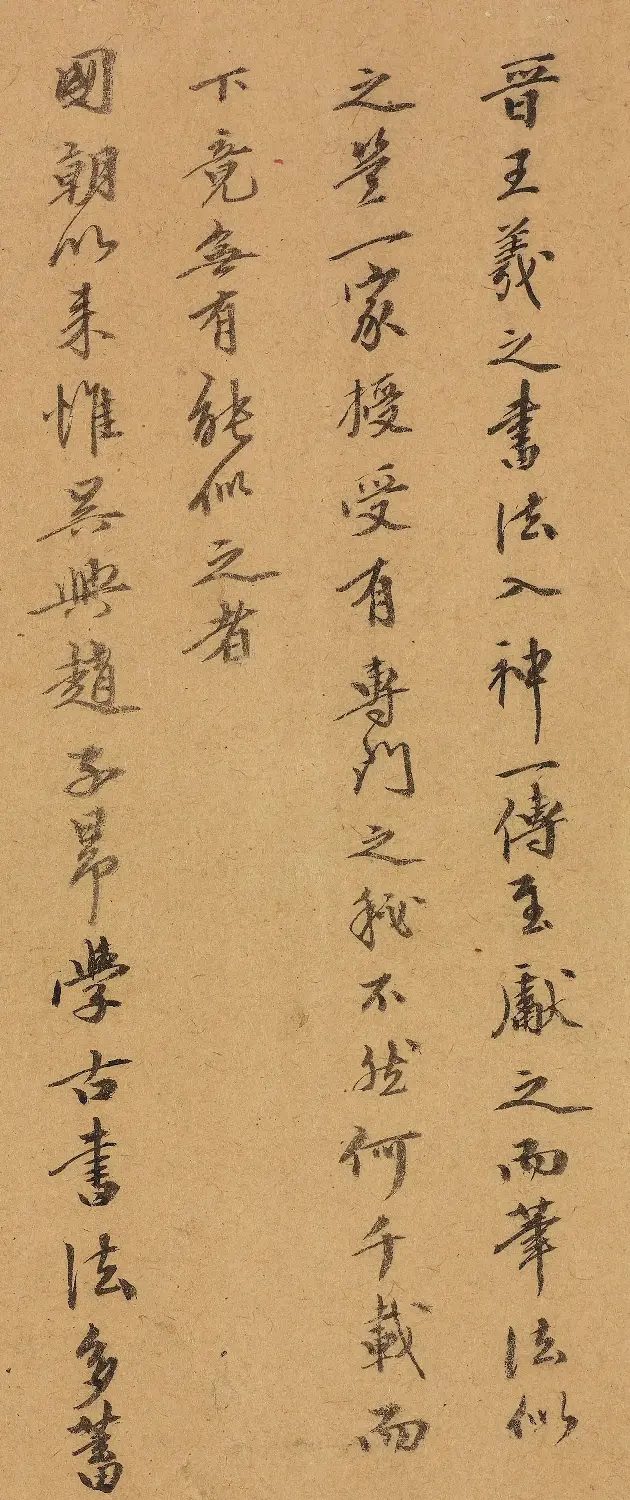 晋王羲之書法入神一傳至獻之而筆法似
之豈一家授受有專門之秘不然何千載而
下竟無有能似之者
國朝以来惟吴興趙子昂學古書法多蓄